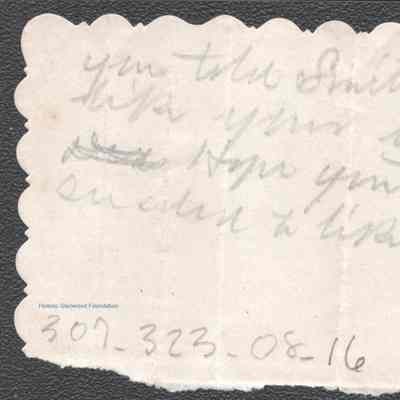 you told Smith
like your
Hope you
to like
Historic Glenwood Foundation
307-323-08-16